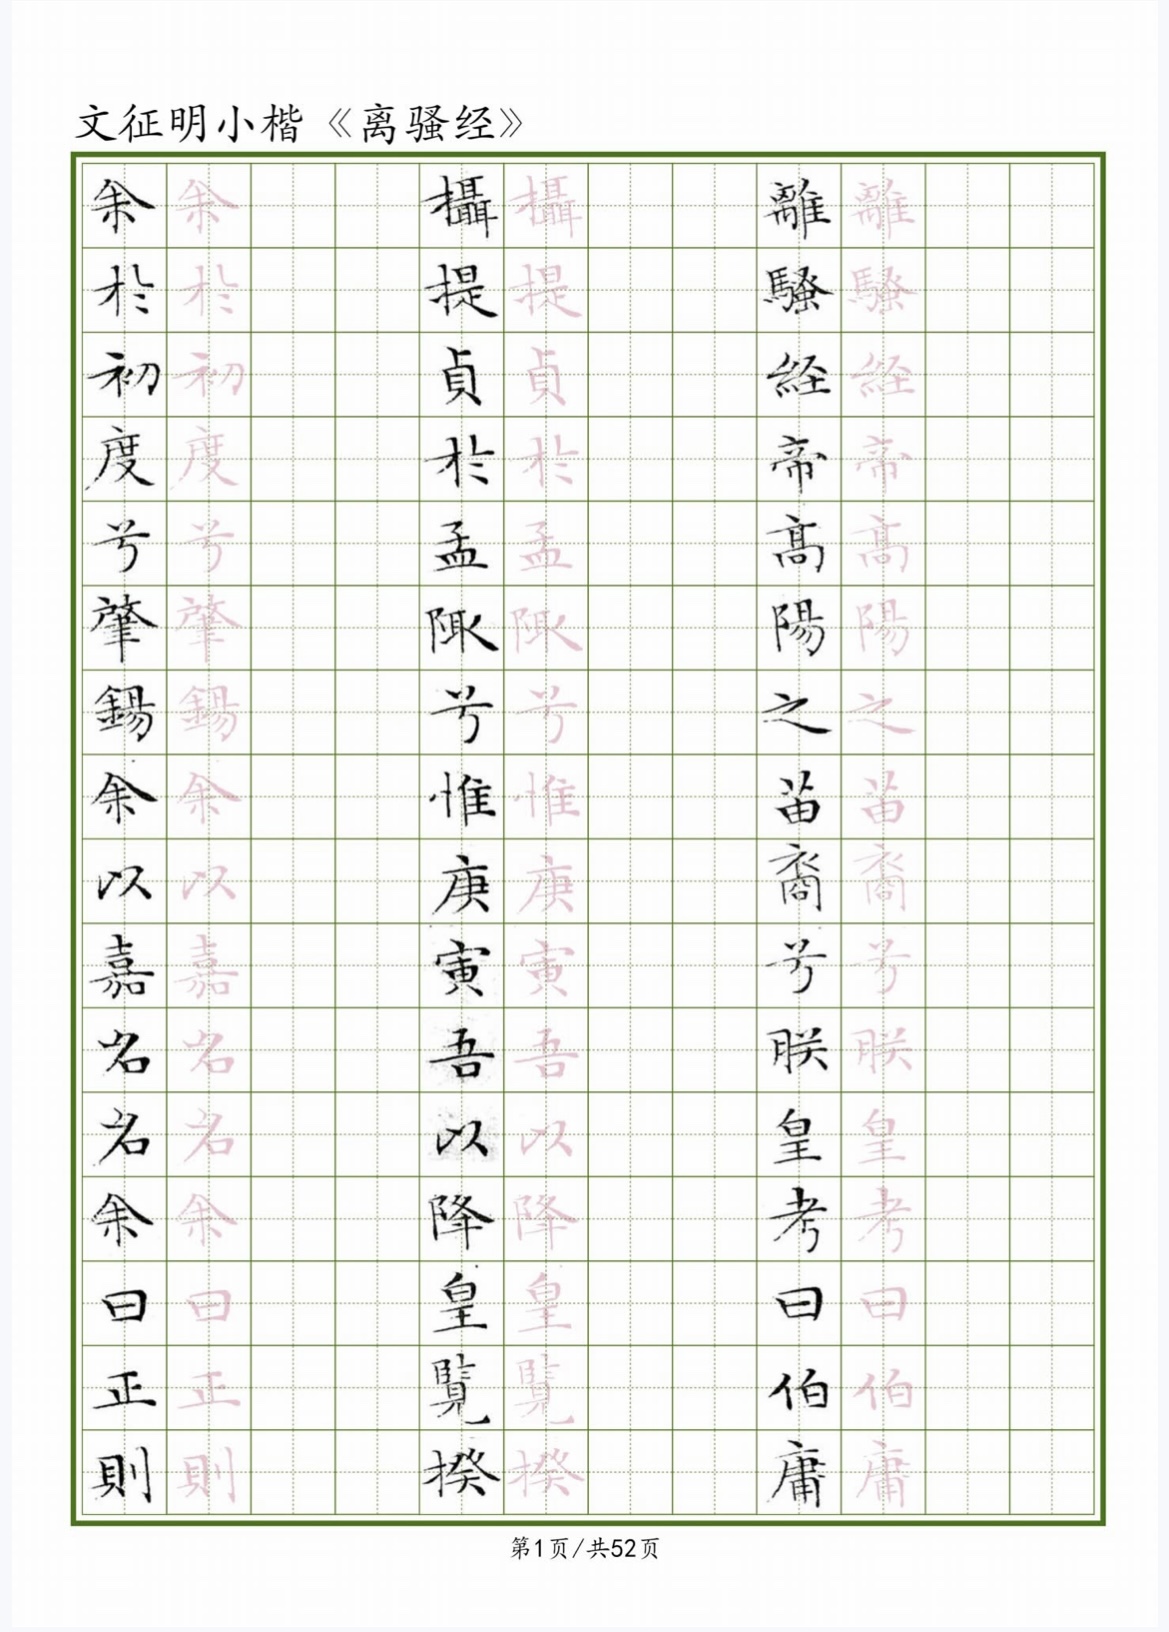 文征明小楷《离骚经》
離騷経帝髙陽之苗裔兮朕皇考曰伯庸
離騷経帝髙陽之苗裔兮朕皇考曰伯庸
攝提貞於孟陬兮惟庚寅吾以降皇覽揆
攝提貞於孟陬兮惟庚寅吾以降皇覽揆
余於初度兮肇錫余以嘉名名余曰正則
余於初度兮肇錫余以嘉名名余曰正則
第1页/共52页